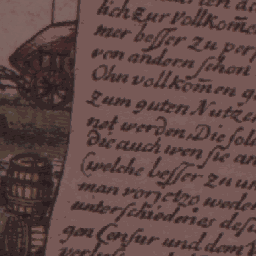 lich zur Vollkom̄e
mer besser zu per
ren andern schon
Ohn vollkom̄en g
zum guten Nutze
net werden. Die soll
die auch wen sie an
(welche besser zu u
man vorjetzo wede
unterschiedenes des
gen Censur und dem